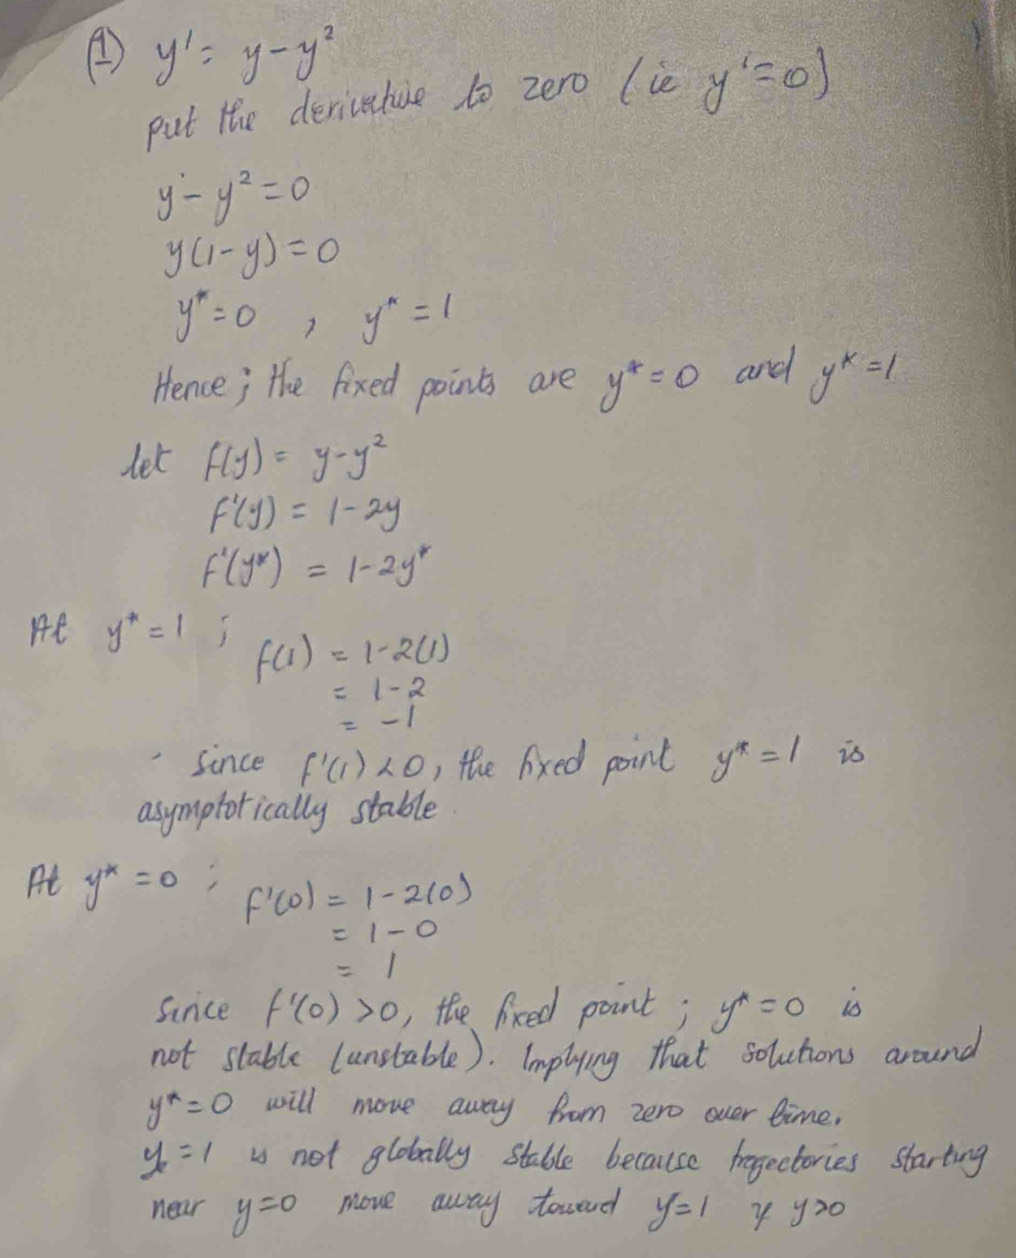 (1) y' = y - y²
put the derivative to zero (ie y' = 0)
y - y² = 0
y(1-y) = 0
y* = 0 , y* = 1
Hence; the fixed points are y* = 0 and y* = 1
let f(y) = y - y²
f'(y) = 1 - 2y
f'(y*) = 1 - 2y*
At y* = 1 ;
f(1) = 1 - 2(1)
= 1 - 2
= -1
Since f'(1) < 0, the fixed point y* = 1 is
asymptotically stable.
At y* = 0 ;
f'(0) = 1 - 2(0)
= 1 - 0
= 1
Since f'(0) > 0, the fixed point ; y* = 0 is
not stable (unstable). Implying that solutions around
y* = 0 will move away from zero over time.
y = 1 is not globally stable because tragectories starting
near y = 0 move away toward y = 1 if y > 0